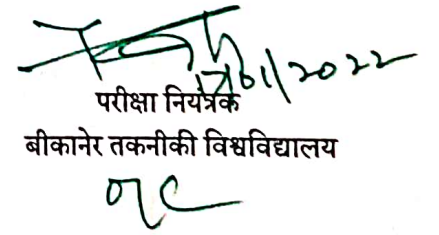 17/01/2022
परीक्षा नियंत्रक
बीकानेर तकनीकी विश्वविद्यालय